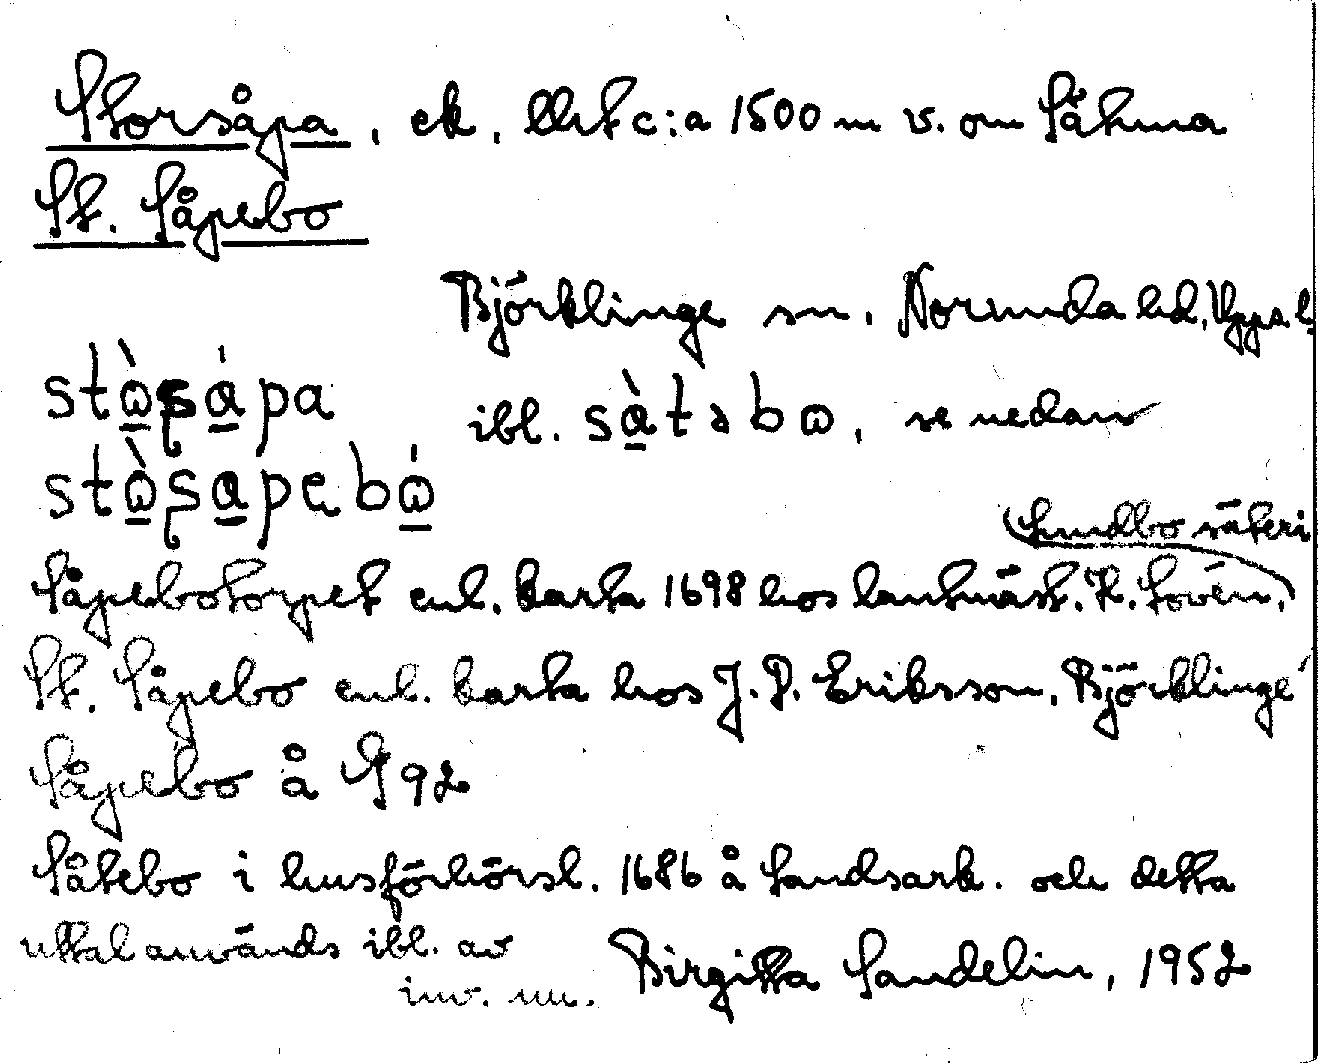 Storsåpa, ek. litt c:a 1500 m v. om Sätuna
St. Såpebo
Björklinge sn, Norunda hd, Upps. l.
stɷ̀ʂápa ibl. sàtəbɷ, se nedan
stɷ̀ʂapebɷ́
Sundbo säteri
Såpebotorpet enl. karta 1698 hos lantmät. H. Lovén,
St. Såpebo enl. karta hos J. P. Eriksson, Björklinge
Såpebo å G 92
Såtebo i husförhörsl. 1686 å Landsark. och detta
uttal används ibl. av
inv. nu. Birgitta Sandelin, 1952